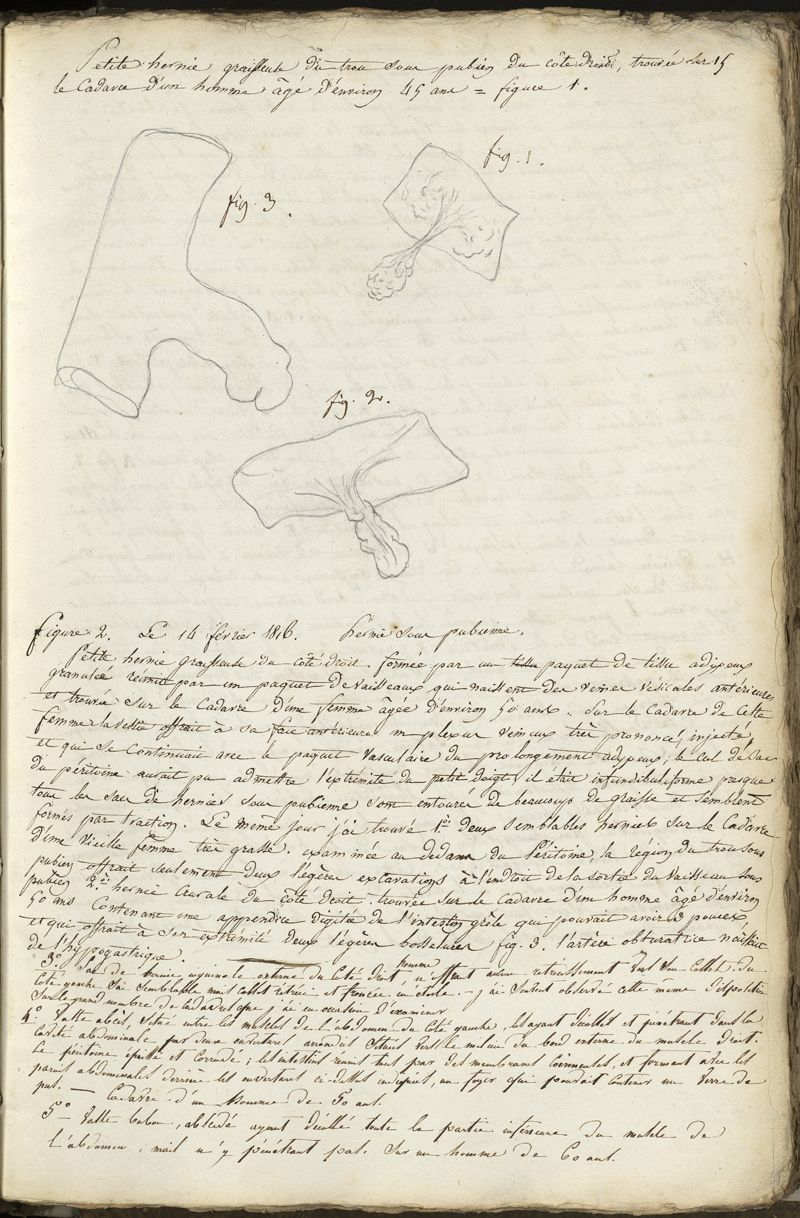 Petite hernie graisseuse du trou sous pubien du côté droit, trouvée sur 15
le Cadavre d'un homme âgé d'environ 45 ans = figure 1.
fig. 1.
fig. 3.
fig. 2.
figure 2. Le 14 février 1816. hernie sous pubienne.
Petite hernie graisseuse du côté droit. formée par un tissu paquet de tissu adipeux
granulée réunit par un paquet de vaisseaux qui naissent des veines vésicales antérieures
et trouvée sur le Cadavre d'une femme âgée d'environ 50 ans .. sur le Cadavre de cette
femme la vessie offrait à sa face antérieure un plexus veineux très prononcé, injecté,
et qui se continuait avec le paquet vasculaire du prolongement adipeux; le cul de sac
du péritoine aurait pu admettre l'extrémité du petit doigt, il était infundibuliforme presque
tous les sacs de hernies sous pubienne sont entourés de beaucoup de graisse et semblent
formés par traction. Le même jour j'ai trouvé 1.° deux semblables hernies sur le Cadavre
d'une vieille femme très grasse. examinée au dedans du Péritoine, la région du trou sous
pubien offrait seulement deux légères excavations à l'endroit de la sortie du vaisseau sous
pubien 2.° hernie crurale du côté droit. trouvée sur le Cadavre d'un homme âgé d'environ
50 ans contenant une appendice digitée de l'intestin grêle qui pouvait avoir 3 pouces,
et qui offrait à son extrémité deux légères bosselures fig. 3. l'artère obturatrice naissait
de l'hypogastrique.
3.° Sac de hernie inguinale externe du côté droit, homme, n'offrant aucun rétrécissement vers son Collet. du
côté gauche sac semblable mais collet rétréci et froncé en étoile. - j'ai souvent observé cette même disposition
sur le grand nombre de cadavres que j'ai eu occasion d'examiner
4.° Vaste abcès, situé entre les muscles de l'abdomen du côté gauche, les ayant décollés et pénétrant dans la
cavité abdominale par deux ouvertures arrondies situées vers le milieu du bord interne du muscle droit.
Le péritoine épaissi et corrodé; les intestins réunis tous par des membranes coënneuses, et formant avec les
parois abdominales derrière les ouvertures ci-dessus indiquées, un foyer qui pouvait contenir un verre de
pus. — Cadavre d'un homme de 50 ans.
5.° — Vaste bubon, abcédé ayant décollé toute la partie inférieure du muscle de
l'abdomen, mais n'y pénétrant pas. Sur un homme de 60 ans.